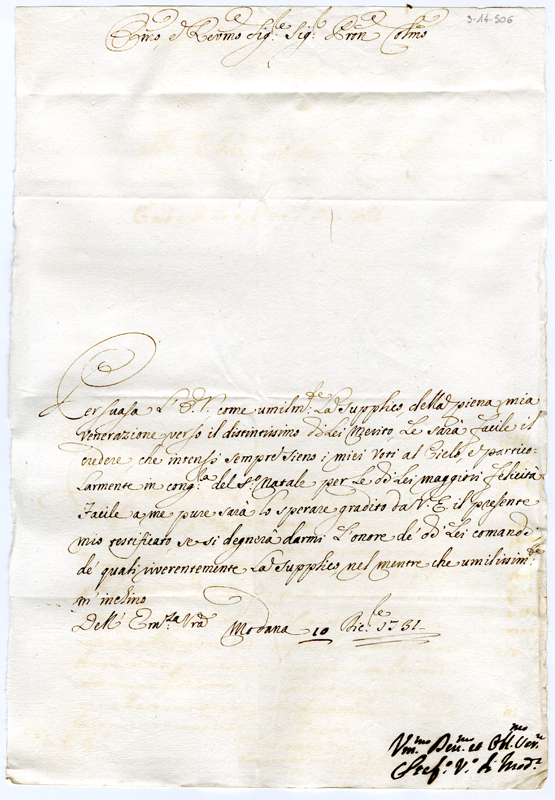 3-14-506
Emo e Revmo Sigre Sigr Pron Colmo
Persuasa l'E.V. come umilmte La supplico della piena mia
Venerazione verso il distintissimo di Lei Merito, Le sarà facile il
credere che intensi sempre sieno i miei Voti al Cielo, e partico-
larmente in congra del So Natale per le di Lei maggiori felicità
Facile a me pure sarà lo sperare gradito da V.E. il presente
mio testificato se si degnerà darmi l'onore de' di Lei comandi
de' quali riverentemente La supplico, nel mentre che umilissimte
m'inchino
Dell' Emza Vra Modana 10 Dicre 1731
Vmmo Devmo et Obmo Serre
Stefo Vo di Moda